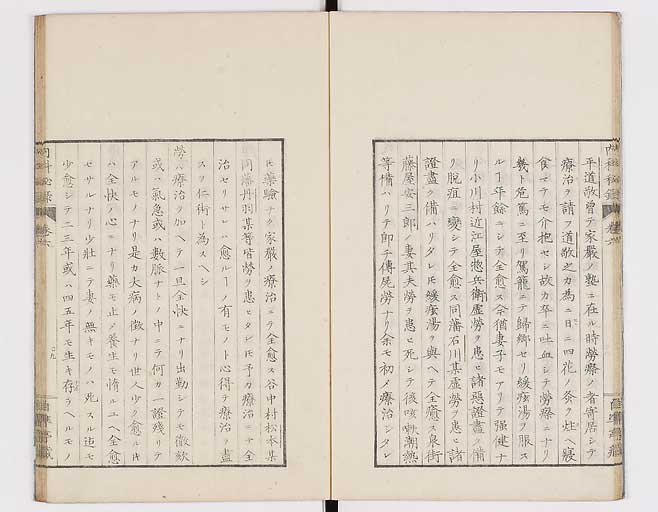 平道敬曽テ家嚴ノ塾ニ在ル時勞瘵ノ者寄居シテ
療治ヲ請フ道敬之カ為ニ日ニ四花ノ灸ヲ炷ヘ寢
食マテモ介抱セシ故カ卒ニ吐血シテ勞瘵ニナリ
幾ト危篤ニ至リ駕籠ニテ歸郷セリ緩痃湯ヲ服ス
ルヿ年餘ニシテ全愈ス今猶妻子モアリテ強健ナ
リ小川村近江屋惣兵衛虚勞ヲ患ヒ諸惡證盡ク備
リ脱疽ニ變シテ全愈ス同藩石川某虚勞ヲ患ヒ諸
證盡ク備ハリタレ𪜈緩痃湯ヲ與ヘテ全癒ス泉街
藤屋安三郎ノ妻其夫勞ヲ患ヒ死シテ後咳嗽潮熱
等備ハリテ即チ傳屍勞ナリ余モ初メ療治シタレ
𪜈藥驗ナク家嚴ノ療治ニテ全愈ス谷中村松本某
同藩丹羽某等皆勞ヲ患ヒタレ𪜈予カ療治ニテ全
治セリサレハ愈ルヿノ有モノト心得テ療治ヲ盡
スヲ仁術ト為スヘシ
勞ノ療治ヲ加ヘテ一旦全快ニナリ出勤シテモ微欬
或ハ氣急或ハ數脈ナトノ中ニテ何カ一證殘リテ
アルモノナリ是カ大病ノ徴ナリ世人少ク愈ル𪜈
ハ全快ノ心ニナリ藥モ止メ養生モ惰ルユヘ全愈
セサルナリ少壯ニテ妻ノ無キモノハ死スル迠モ
少愈シテ二三年或ハ四五年モ生キ存ラヘルモノ
内科秘録
卷六